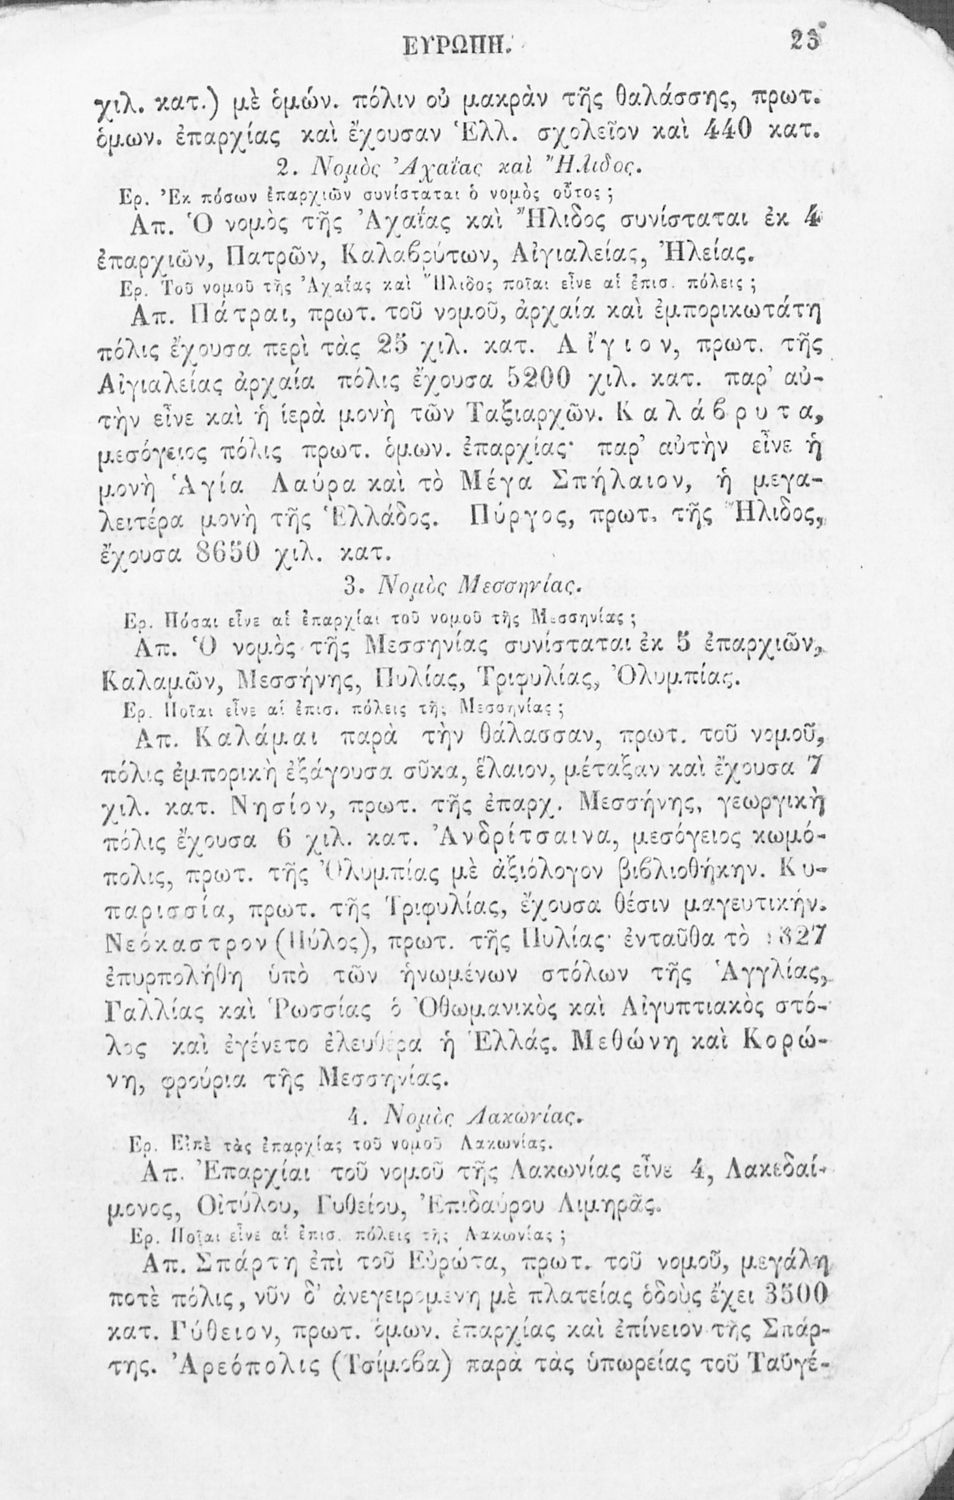 ΕΥΡΩΠΗ. 23
χιλ. κατ.) μὲ ὁμών. πόλιν οὐ μακρὰν τῆς θαλάσσης, πρωτ.
ὁμων. ἐπαρχίας καὶ ἔχουσαν Ἑλλ. σχολεῖον καὶ 440 κατ.
2. Νομὸς Ἀχαΐας καὶ Ἤλιδος.
Ερ. Ἐκ πόσων ἐπαρχιῶν συνίσταται ὁ νομὸς οὗτος ;
Απ. Ὁ νομὸς τῆς Ἀχαΐας καὶ Ἤλιδος συνίσταται ἐκ 4
ἐπαρχιῶν, Πατρῶν, Καλαβρύτων, Αἰγιαλείας, Ἠλείας.
Ερ. Τοῦ νομοῦ τῆς Ἀχαΐας καὶ Ἤλιδος ποῖαι εἶνε αἱ ἐπισ. πόλεις ;
Απ. Πάτραι, πρωτ. τοῦ νομοῦ, ἀρχαία καὶ ἐμπορικωτάτη
πόλις ἔχουσα περὶ τὰς 25 χιλ. κατ. Αἴγιον, πρωτ. τῆς
Αἰγιαλείας ἀρχαία πόλις ἔχουσα 5200 χιλ. κατ. παρ’ αὐ-
τὴν εἶνε καὶ ἡ ἱερὰ μονὴ τῶν Ταξιαρχῶν. Καλάβρυτα,
μεσόγειος πόλις πρωτ. ὁμων. ἐπαρχίας· παρ’ αὐτὴν εἶνε ἡ
μονὴ Ἁγία Λαύρα καὶ τὸ Μέγα Σπήλαιον, ἡ μεγα-
λειτέρα μονὴ τῆς Ἑλλάδος. Πύργος, πρωτ. τῆς Ἤλιδος,
ἔχουσα 8650 χιλ. κατ.
3. Νομὸς Μεσσηνίας.
Ερ. Πόσαι εἶνε αἱ ἐπαρχίαι τοῦ νομοῦ τῆς Μεσσηνίας ;
Απ. Ὁ νομὸς τῆς Μεσσηνίας συνίσταται ἐκ 5 ἐπαρχιῶν,
Καλαμῶν, Μεσσήνης, Πυλίας, Τριφυλίας, Ὀλυμπίας.
Ερ. Ποῖαι εἶνε αἱ ἐπισ. πόλεις τῆς Μεσσηνίας ;
Απ. Καλάμαι παρὰ τὴν θάλασσαν, πρωτ. τοῦ νομοῦ,
πόλις ἐμπορικὴ ἐξάγουσα σῦκα, ἔλαιον, μέταξαν καὶ ἔχουσα 7
χιλ. κατ. Νησίον, πρωτ. τῆς ἐπαρχ. Μεσσήνης, γεωργικὴ
πόλις ἔχουσα 6 χιλ. κατ. Ἀνδρίτσαινα, μεσόγειος κωμό-
πολις, πρωτ. τῆς Ὀλυμπίας μὲ ἀξιόλογον βιβλιοθήκην. Κυ-
παρισσία, πρωτ. τῆς Τριφυλίας, ἔχουσα θέσιν μαγευτικήν.
Νεόκαστρον (Πύλος), πρωτ. τῆς Πυλίας· ἐνταῦθα τὸ 1827
ἐπυρπολήθη ὑπὸ τῶν ἡνωμένων στόλων τῆς Ἀγγλίας,
Γαλλίας καὶ Ῥωσσίας ὁ Ὀθωμανικὸς καὶ Αἰγυπτιακὸς στό-
λος καὶ ἐγένετο ἐλευθέρα ἡ Ἑλλάς. Μεθώνη καὶ Κορώ-
νη, φρούρια τῆς Μεσσηνίας.
4. Νομὸς Λακωνίας.
Ερ. Εἰπὲ τὰς ἐπαρχίας τοῦ νομοῦ Λακωνίας.
Απ. Ἐπαρχίαι τοῦ νομοῦ τῆς Λακωνίας εἶνε 4, Λακεδαί-
μονος, Οἰτύλου, Γυθείου, Ἐπιδαύρου Λιμηρᾶς.
Ερ. Ποῖαι εἶνε αἱ ἐπισ. πόλεις τῆς Λακωνίας ;
Απ. Σπάρτη ἐπὶ τοῦ Εὐρώτα, πρωτ. τοῦ νομοῦ, μεγάλη
ποτὲ πόλις, νῦν δ’ ἀνεγειρομένη μὲ πλατείας ὁδοὺς ἔχει 3500
κατ. Γύθειον, πρωτ. ὁμων. ἐπαρχίας καὶ ἐπίνειον τῆς Σπάρ-
της. Ἀρεόπολις (Τσίμοβα) παρὰ τὰς ὑπωρείας τοῦ Ταϋγέ-